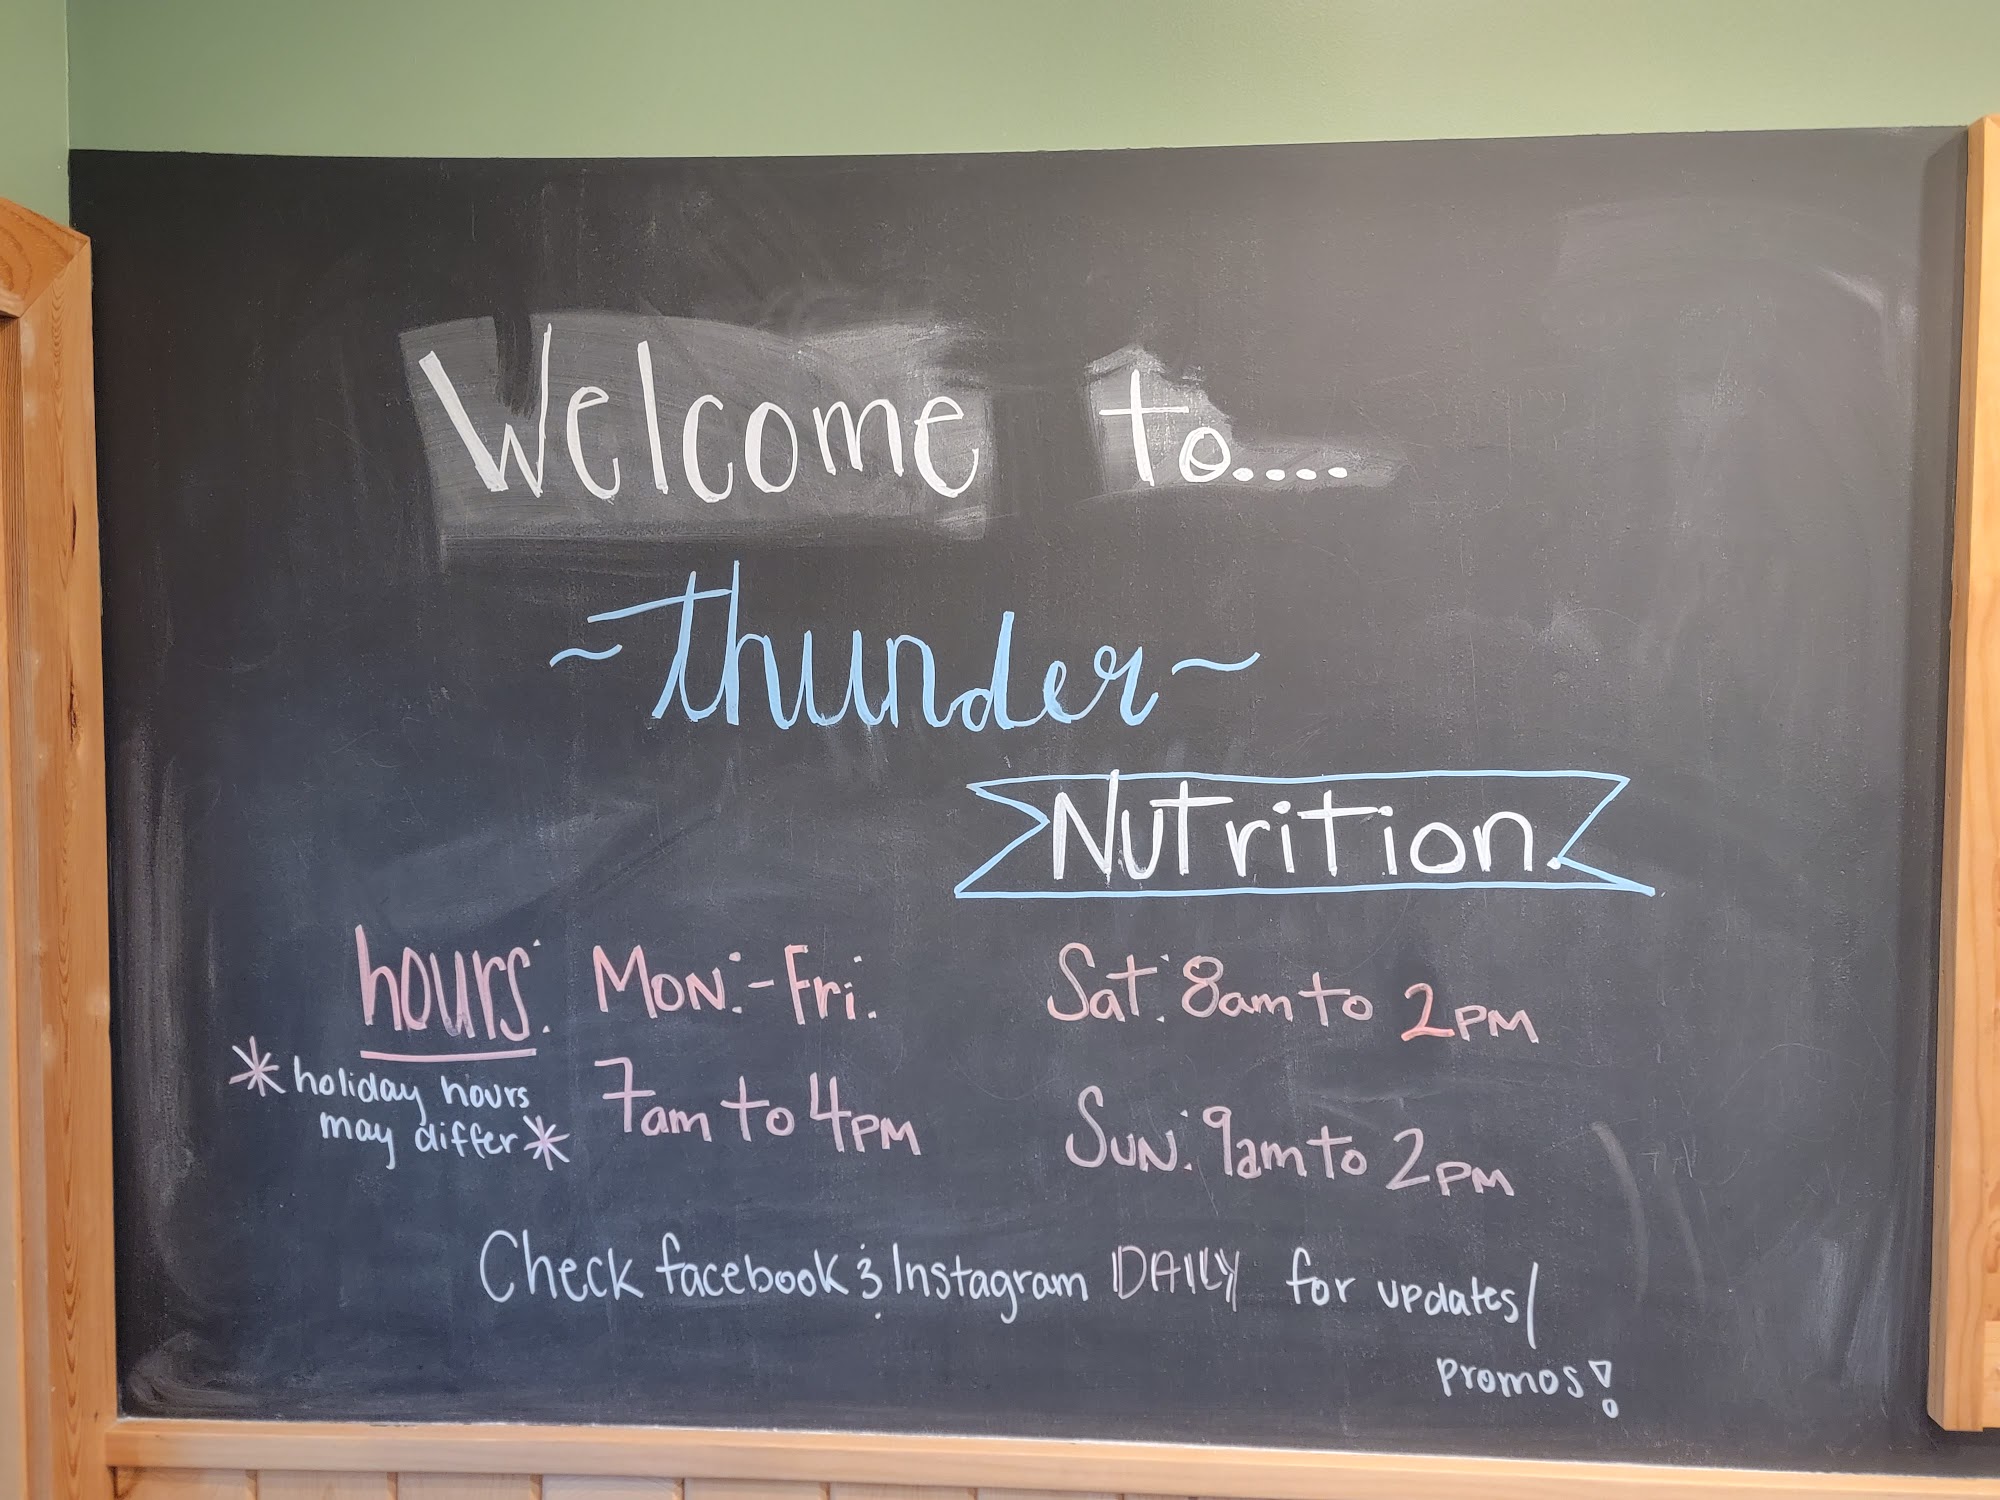 Welcome to....
~thunder~
Nutrition.
hours: Mon:-Fri.
7am to 4pm
*holiday hours
may differ*
Sat: 8am to 2pm
Sun: 9am to 2pm
Check facebook & Instagram DAILY for updates/
promos!